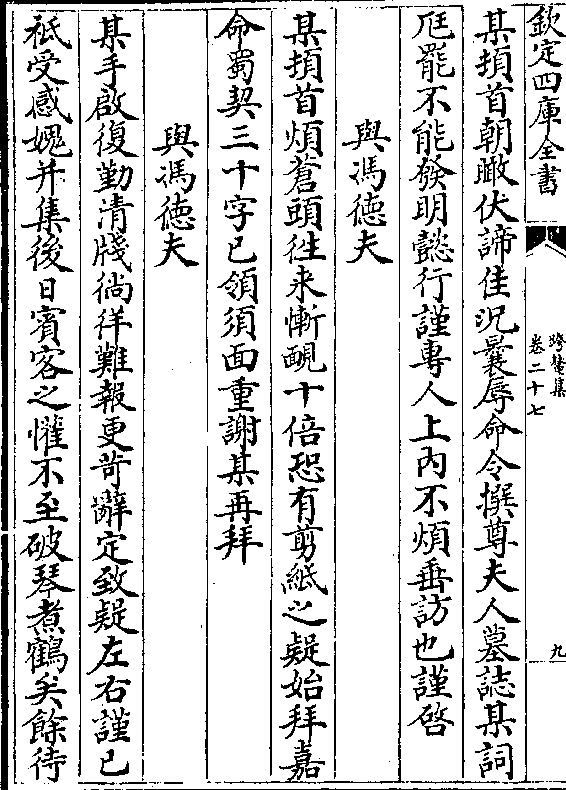 欽定四庫全書
跨鼇集
卷二十七
九
某頓首朝暾伏諦佳況曩辱命令撰尊夫人墓誌某詞
尫罷不能發明懿行謹專人上內不煩垂訪也謹啓
與馮徳夫
某頓首煩蒼頭徃来慚靦十倍恐有剪紙之疑始拜嘉
命蜀契三十字已領須面重謝某再拜
與馮徳夫
某手啟復勤清牋徜徉難報更苛辭定致疑左右謹已
祇受感媿并集後日賓客之懽不至破琴煮鶴矣餘待